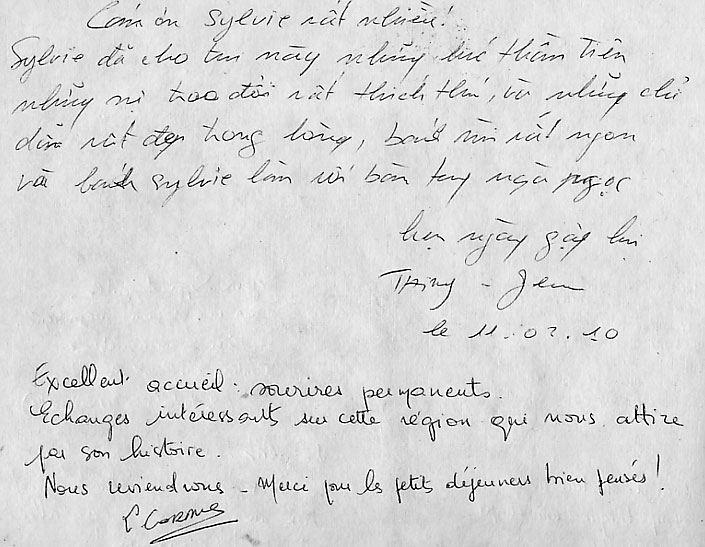 Cám ơn Sylvie rất nhiều!
Sylvie đã cho tụi này những thần tiên
những trao đổi rất thích thú, và những chỉ
dẫn rất đẹp trong lòng, bánh mì rất ngon
và bánh Sylvie làm với bàn tay ngà ngọc
hẹn ngày gặp lại
le 11.02.10
Excellent accueil. sourires permanents.
Echanges intéressants sur cette région qui nous attire
par son histoire.
Nous reviendrons - Merci pour les petits déjeuners bien pensés!